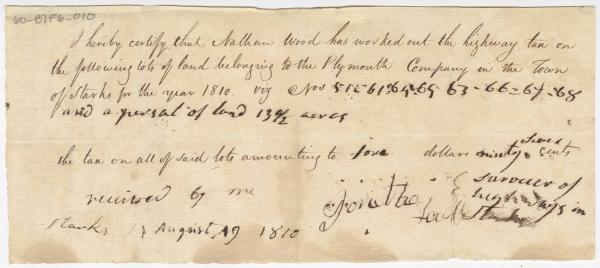 60-B7F6-010
I hereby certify that Nathan Wood has worked out the highway tax on
the following lots of land belonging to the Plymouth Company in the Town
of Starks for the year 1810. viz Nos 51-2-61-64-65 63-66-67-68
and a persal of land 134/2 acres
the tax on all of said lots amounting to dollars ninty Seven cents
received by me Survuer of
Starks August 19 1810 high ways in
Starks